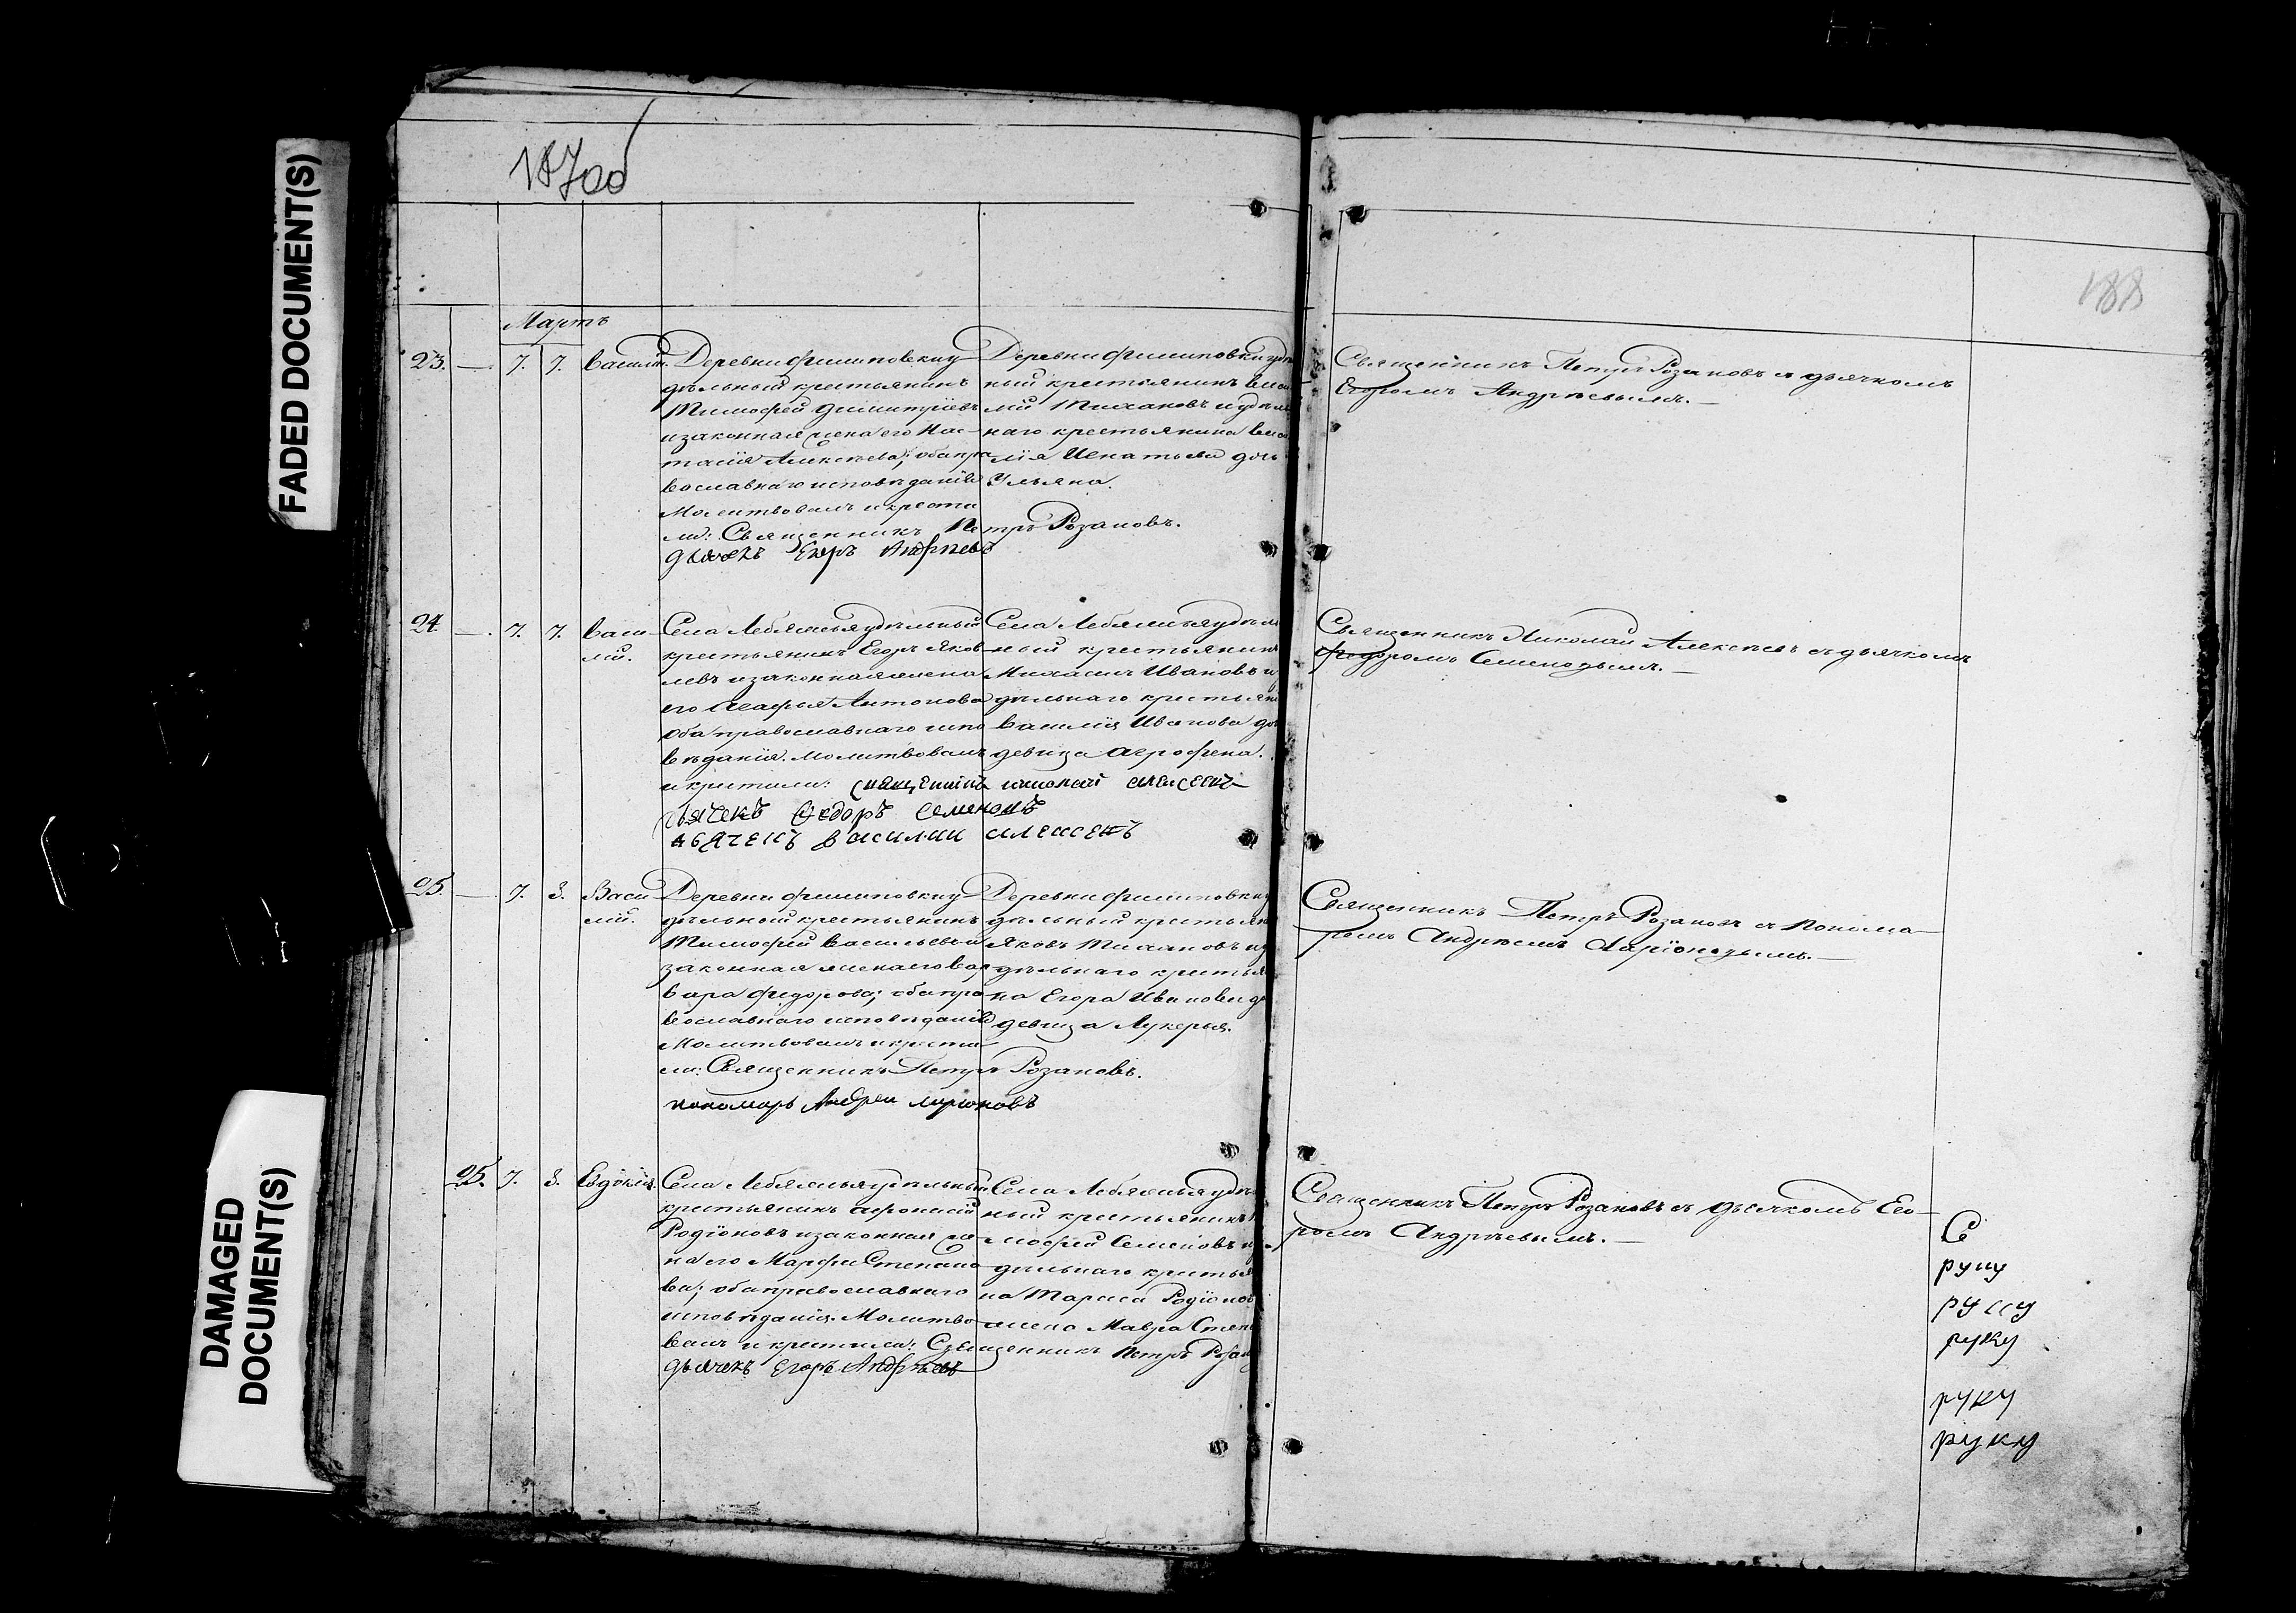 FADED DOCUMENT(S)
DAMAGED
DOCUMENT(S)
188
Мартъ
23. — 7. 7. Василій.
Деревни Филиповки у-
дѣльный крестьянинъ
Тимофей Димитріевъ
и законная жена его Нас-
тасія Алексѣева; оба пра
вославнаго исповѣданія
Молитвовалъ и крести
ли: Священникъ Петръ Розановъ.
дьячекъ Егоръ Андрѣевъ
Деревни Филиповки удѣ
ный крестьянинъ
лій Тихановъ и удѣл
наго крестьянина
лія Игнатьева доч
Ульяна.
Священникъ Петръ Розановъ съ дьячкомъ
Егоромъ Андрѣевымъ. —
24. — 7. 7. Васи-
лій.
Села Лебяжья удѣльный
крестьянинъ Егоръ Яков-
левъ и законная жена
его Агафья Антонова
оба православнаго испо
вѣданія. Молитвовалъ
и крестили: священникъ николай алексеевъ
дьячекъ Федоръ Семеновъ
дьячекъ Василий алексеевъ
Села Лебяжья удѣл
ный крестьянинъ
Михаилъ Ивановъ и
дѣльнаго крестьяни
Василія Иванова до
девица Агрофена.
Священникъ Николай Алексѣевъ съ дьячкомъ
Федоромъ Семеновымъ. —
25. — 7. 8. Васи-
лій.
Деревни Филиповки у-
дѣльной крестьянинъ
Тимофей Васильевъ и
законная жена его Вар-
вара Федорова; оба пра
вославнаго исповѣданія
Молитвовалъ и крести-
ли: Священникъ Петръ Розановъ.
пономарь Андреи Ларионовъ
Деревни Филиповки у
дѣльный крестьян
Яковъ Тихановъ и у
дѣльнаго крестья
на Егора Иванова до
девица Лукерья.
Священникъ Петръ Розановъ съ Понома-
ремъ Андреемъ Ларіоновымъ. —
25. 7. 8. Евдокія.
Села Лебяжья удѣльный
крестьянинъ Афонасій
Родіоновъ и законная же-
на его Марфа Степано-
ва; оба православнаго
исповѣданія. Молитво-
валъ и крестили: Священникъ Петръ Розан
дьячекъ Егоръ Андрѣевъ
Села Лебяжья удѣл
ный крестьянинъ
мофей Семеновъ и у
дѣльнаго крестья
на Тараса Родіонов
жена Мавра Степ
Священникъ Петръ Розановъ съ дьячкомъ Его-
ромъ Андрѣевымъ. —
руку
руку
руку
руку
руку